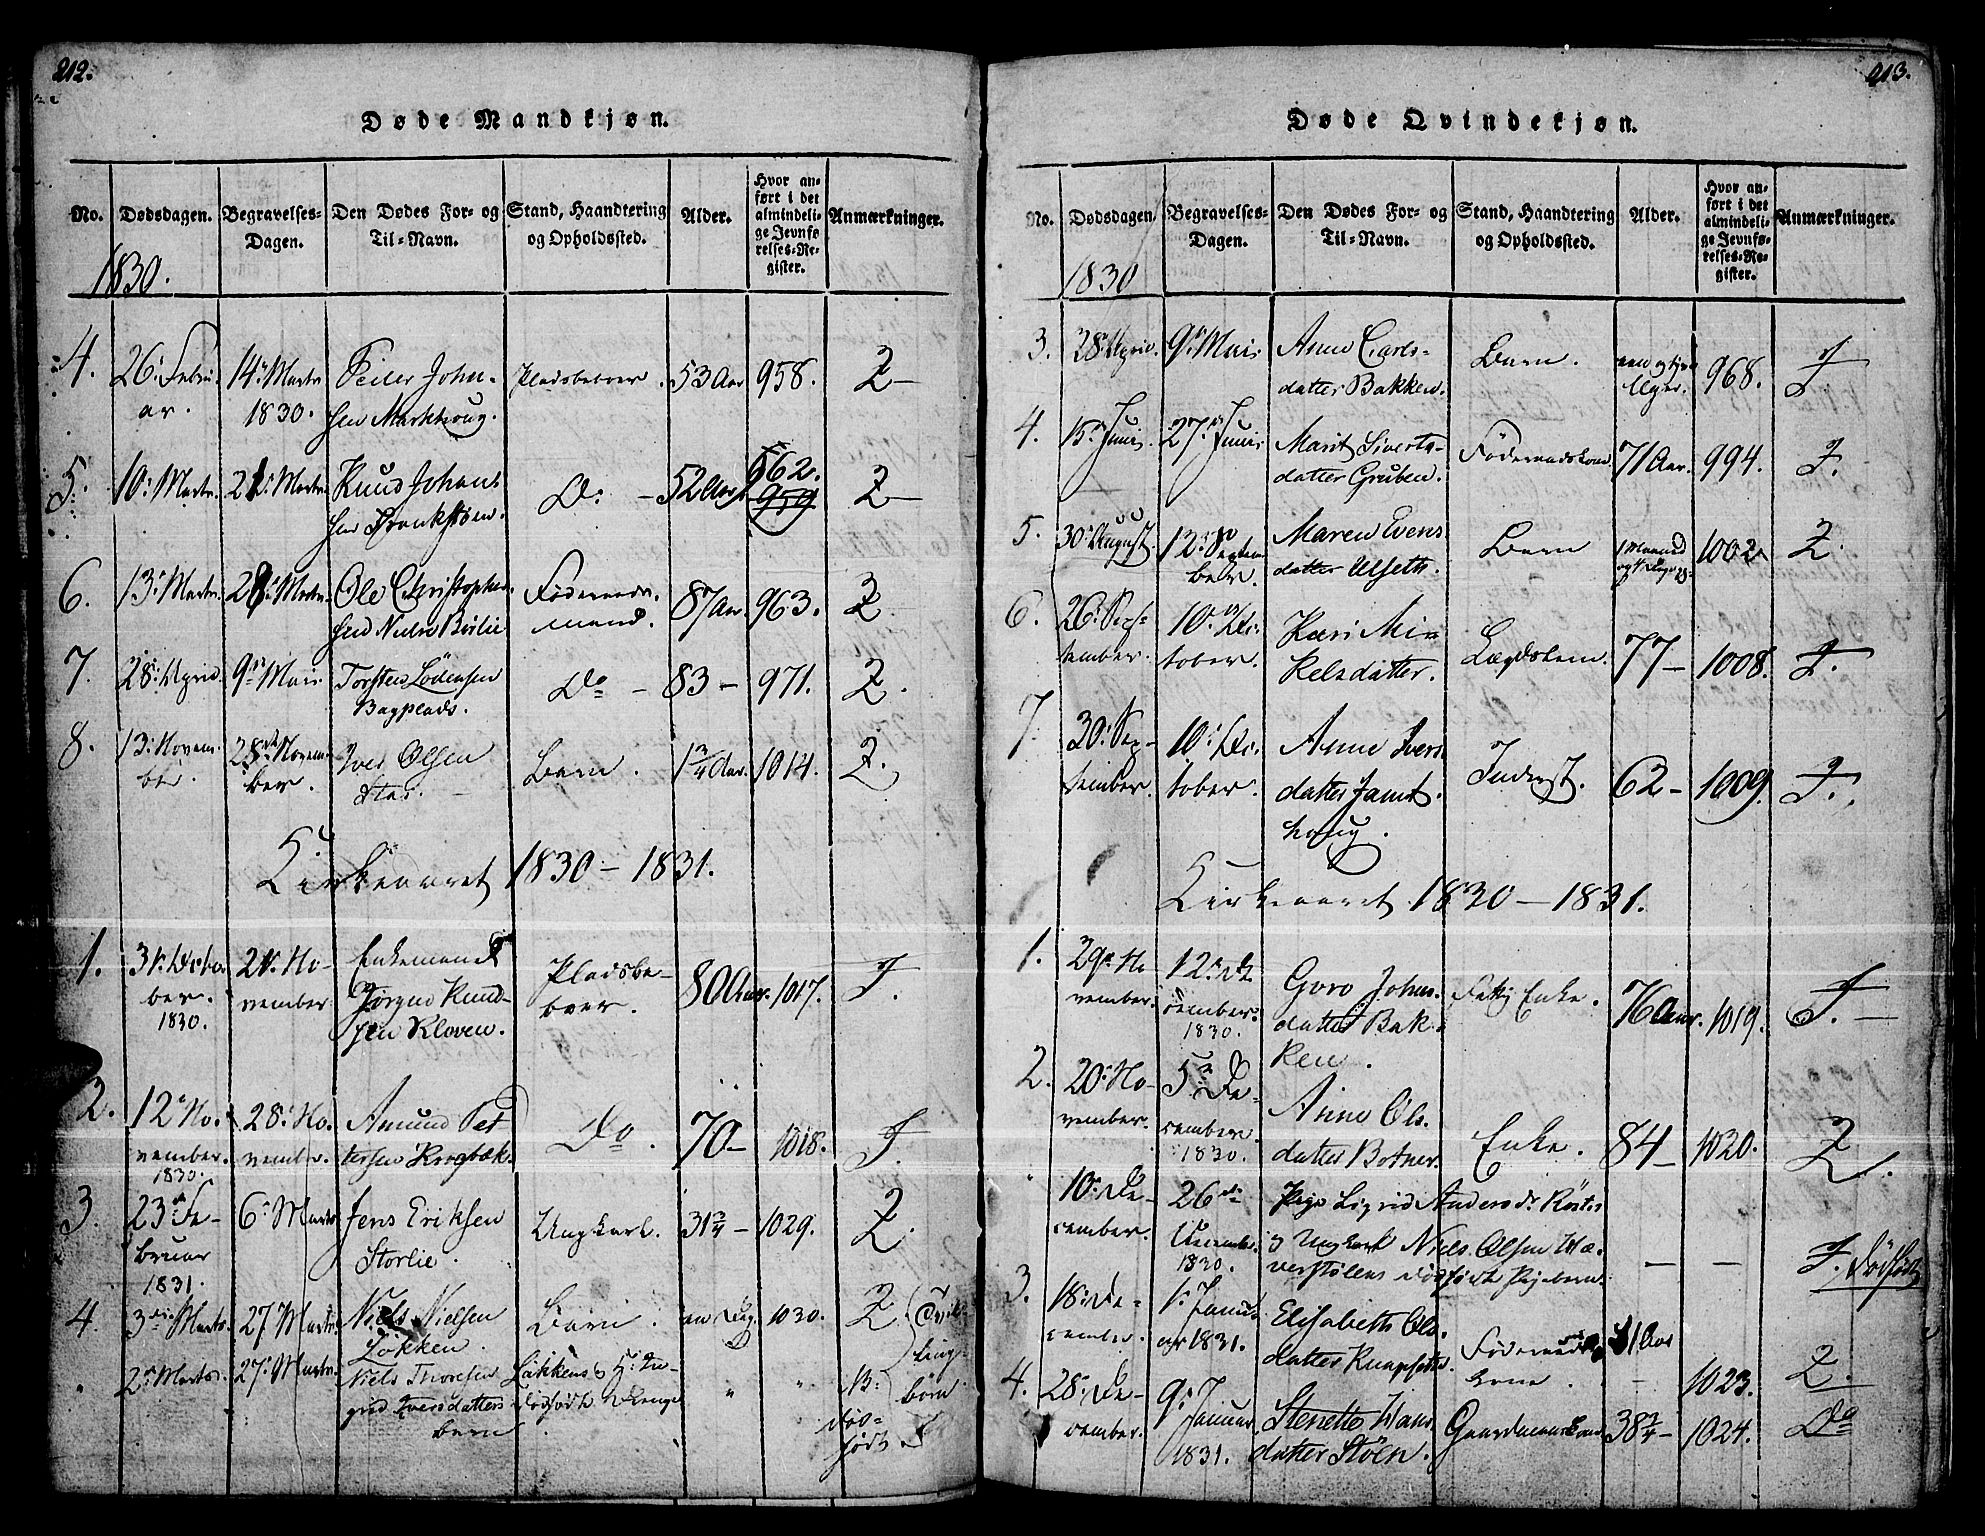 212.
Døde Mandkjøn.
No. Dødsdagen. Begravelses-Dagen. Den Dødes For- og Til-Navn. Stand, Haandtering og Opholdssted. Alder. Hvor anført i det almindelige Jevnførelses-Register. Anmærkninger.
1830.
4. 26. Februar. 14. Marts 1830. Peder Johnsen Markhoug. Pladsbeboer. 53 Aar 958. Z
5. 10. Marts. 21. Marts. Knud Johans 52 Aar 562. 959 Z
Do
6. 13. Marts. 28. Marts. Ole Christophersen Føderaadsmand. 87 Aar 963. Z
7. 28. April. 9. Mai. Torsten Bagplads. Do 83 971. Z.
8. 13. November. 28. November. Iver Olsen Barn. 1 3/4 Aar. 1014. Z.
Kirkeaaret 1830 - 1831.
1. 31. October. 1830. 21. November Enkemand Jørgen Knudsen Kloven. Pladsbeboer. 80 Aar. 1017. J.
2. 12. November. 1830. 28. November. Amund Pettersen Krogbæk. Do. 70 1018. J.
3. 23. Februar 1831. 6. Marts Jens Eriksen Storlie. Ungkarl. 31 3/4 1029. Z.
4. 3. Marts. 27. Marts. Niels Nielsen Løkken. Barn. en Dag. 1030. Z Tvillingbørn
" 2. Marts. 27. Marts. Niels Thoresen Løkkens Iversdatters dødfødte Drengebarn. " " dødfødt
213.
Døde Qvindekjøn.
No. Dødsdagen. Begravelses-Dagen. Den Dødes For- og Til-Navn. Stand, Haandtering og Opholdssted. Alder. Hvor anført i det almindelige Jevnførelses-Register. Anmærkninger.
1830
3. 28. April. 9. Mai. Anne Carlsdatter Bakken. Barn. Uger. 968. J
4. 15. Juni. 27. Juni Marit Sivertsdatter Gruben. Føderaadskone 71 Aar. 994. J.
5. 30. August. 12. September. Maren Evensdatter Ulseth. Barn 1 Maaned 1002 Z.
6. 26. September. 10. October. Kari Mikelsdatter. Lægdslem. 77 1008. J.
7. 30. September. 10. October. Anne Iversdatter Jamthoug. Inderst. 62 1009. J.
Kirkeaaret 1830 - 1831.
1. 29. November. 12. December. 1830. Goro Johnsdatter Bakken. Fattig Enke. 76 Aar. 1019. J.
2. 20. November. 5. December. 1830. Anne Olsdatter Botner. Enke. 84 1020. Z.
10. December. 26. December 1830. Pige Sigrid Andersdr. Ungkarl Niels Olsen dødfødte Pigebarn. J. dødfødt
3. 18. December. 1. Januar 1831. Elisabeth Olsdatter Føderaadskone. 1023. Z.
4. 28. December. 9. Januar 1831. Stenette Hansdatter Støen. Gaardmandskone 38 3/4 1024. Do